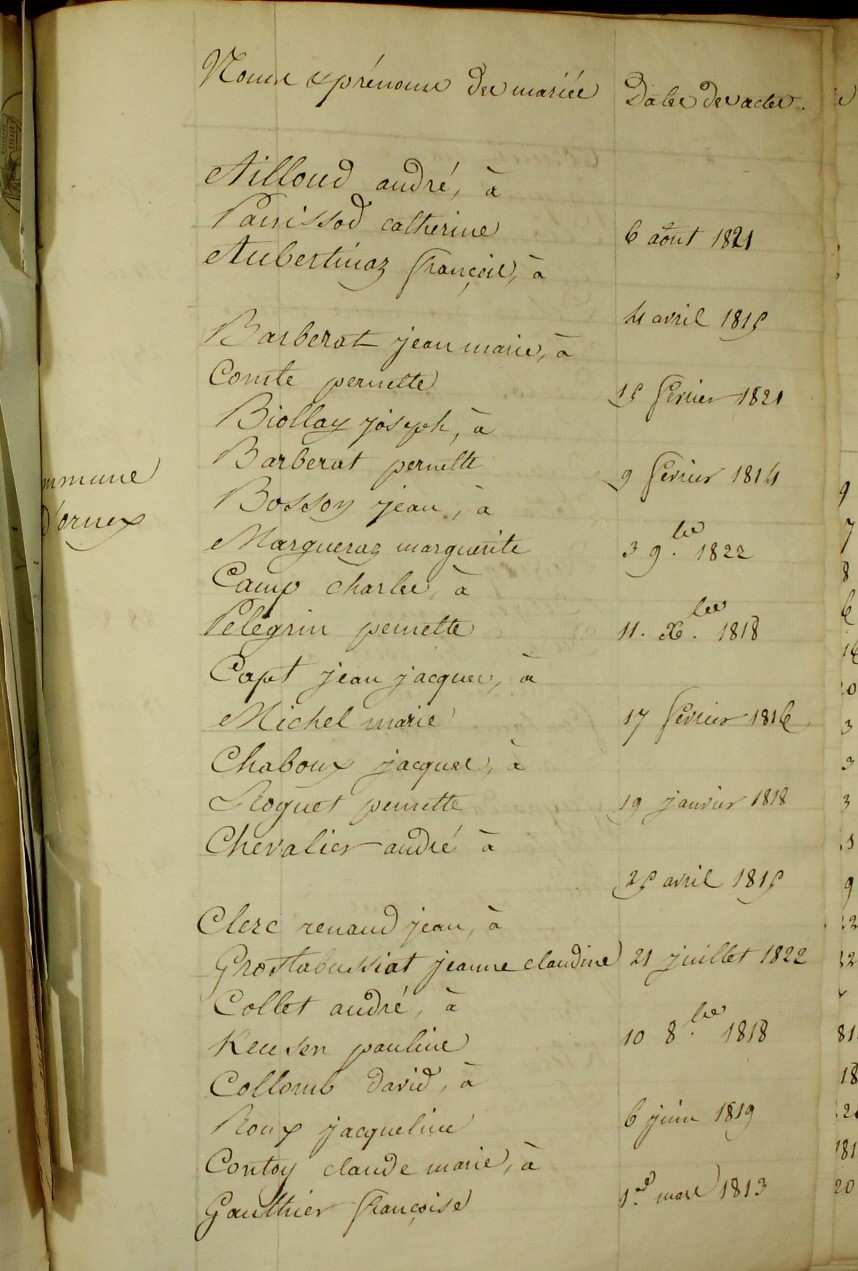 Noms & prénoms des mariés Dates des actes.
Ailloud andré, à
Parissod catherine 6 août 1821
Aubertinaz françois, à
4 avril 1815
Barberat jean marie, à
Comte pernette 15 février 1821
Biollay joseph, à
Barberat pernette 9 février 1814
Bosson jean, à
Margueraz marguerite 3 9.bre 1822
Camp charles, à
Pelegrin pernette 11. X.bre 1818
Capt jean jacques, à
Michel marie 17 février 1816
Chaboux jacques, à
Roguet pernette 19 janvier 1818
Chevalier andré à
25 avril 1815
mmune
d'ornex
Clerc renaud jean, à
Grostabussiat jeanne claudine 21 juillet 1822
Collet andré, à
Keusen pauline 10 8.bre 1818
Collomb david, à
Roux jacqueline 6 juin 1819
Contoy claude marie, à
Gauthier françoise 1.er mars 1813